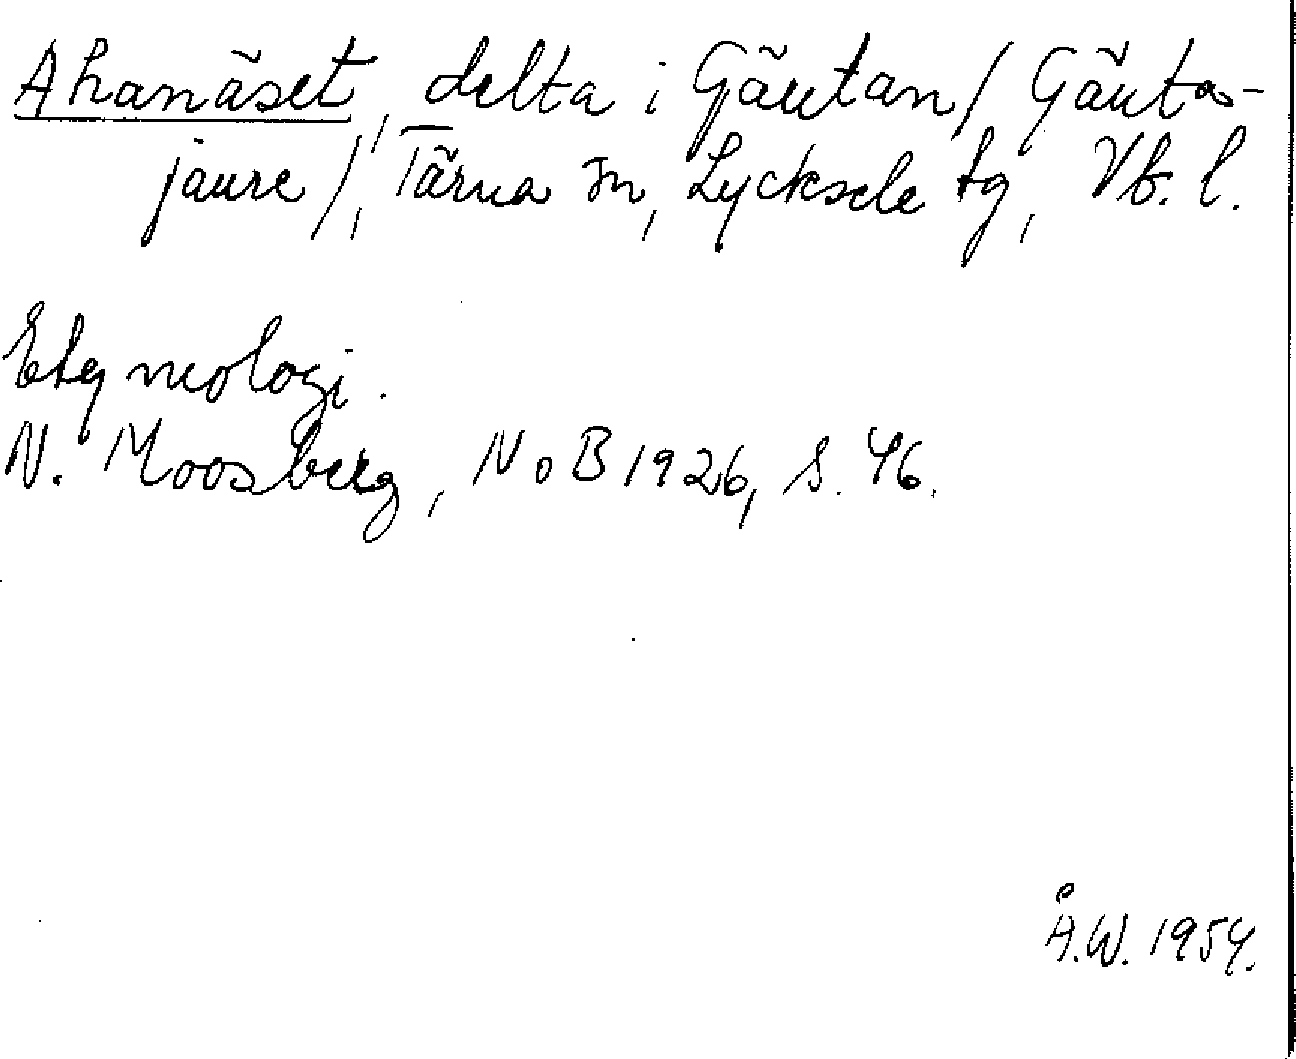 Ahanäset, delta i Gäutan / Gäuta-
jaure /, Tärna sn, Lycksele tg, Vb. l.
Etymologi.
N. Moosberg, NoB 1926, s. 46.
Å.W. 1954.